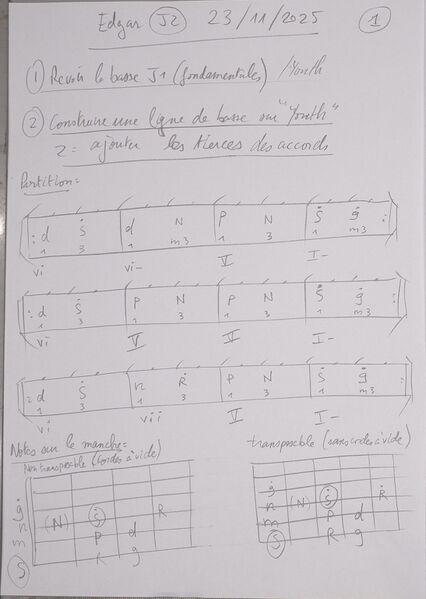 Edgar J2 23/11/2025 1
1 Revoir la basse J1 (fondamentales) / Youth
2 Construire une ligne de basse sur "Youth"
2 = ajouter les tierces des accords
Partition =
: d Ṡ d N P N Ṡ ġ :
1 3 1 m3 1 3 1 m3
vi vi- V I-
: d Ṡ P N P N Ṡ ġ :
1 3 1 3 1 3 1 m3
vi V V I-
: d Ṡ n Ṙ P N Ṡ ġ :
1 3 1 3 1 3 1 m3
vi vii V I-
Notes sur le manche =
Non transposable (cordes à vide)
ġ
n (N) Ṡ R
m P d
S g
transposable (sans cordes à vide)
ġ
n (N) Ṡ Ṙ
m P d
S R g